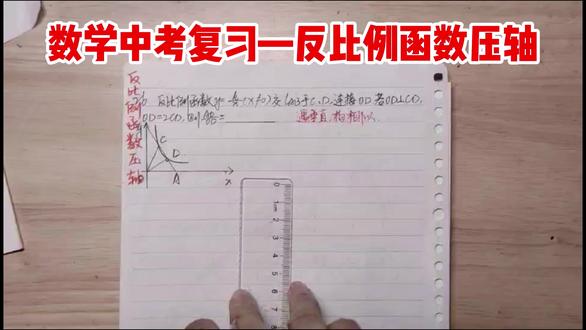 数学中考复习—反比例函数压轴
反比例函数压轴
反比例函数y= (x≠0)交 于C、D,连接OD 若OD⊥CD,
OD=2CD,则 =
遇垂直,构相似
C
D
A
x
0
1cm
2
3
4
5
6
7
8